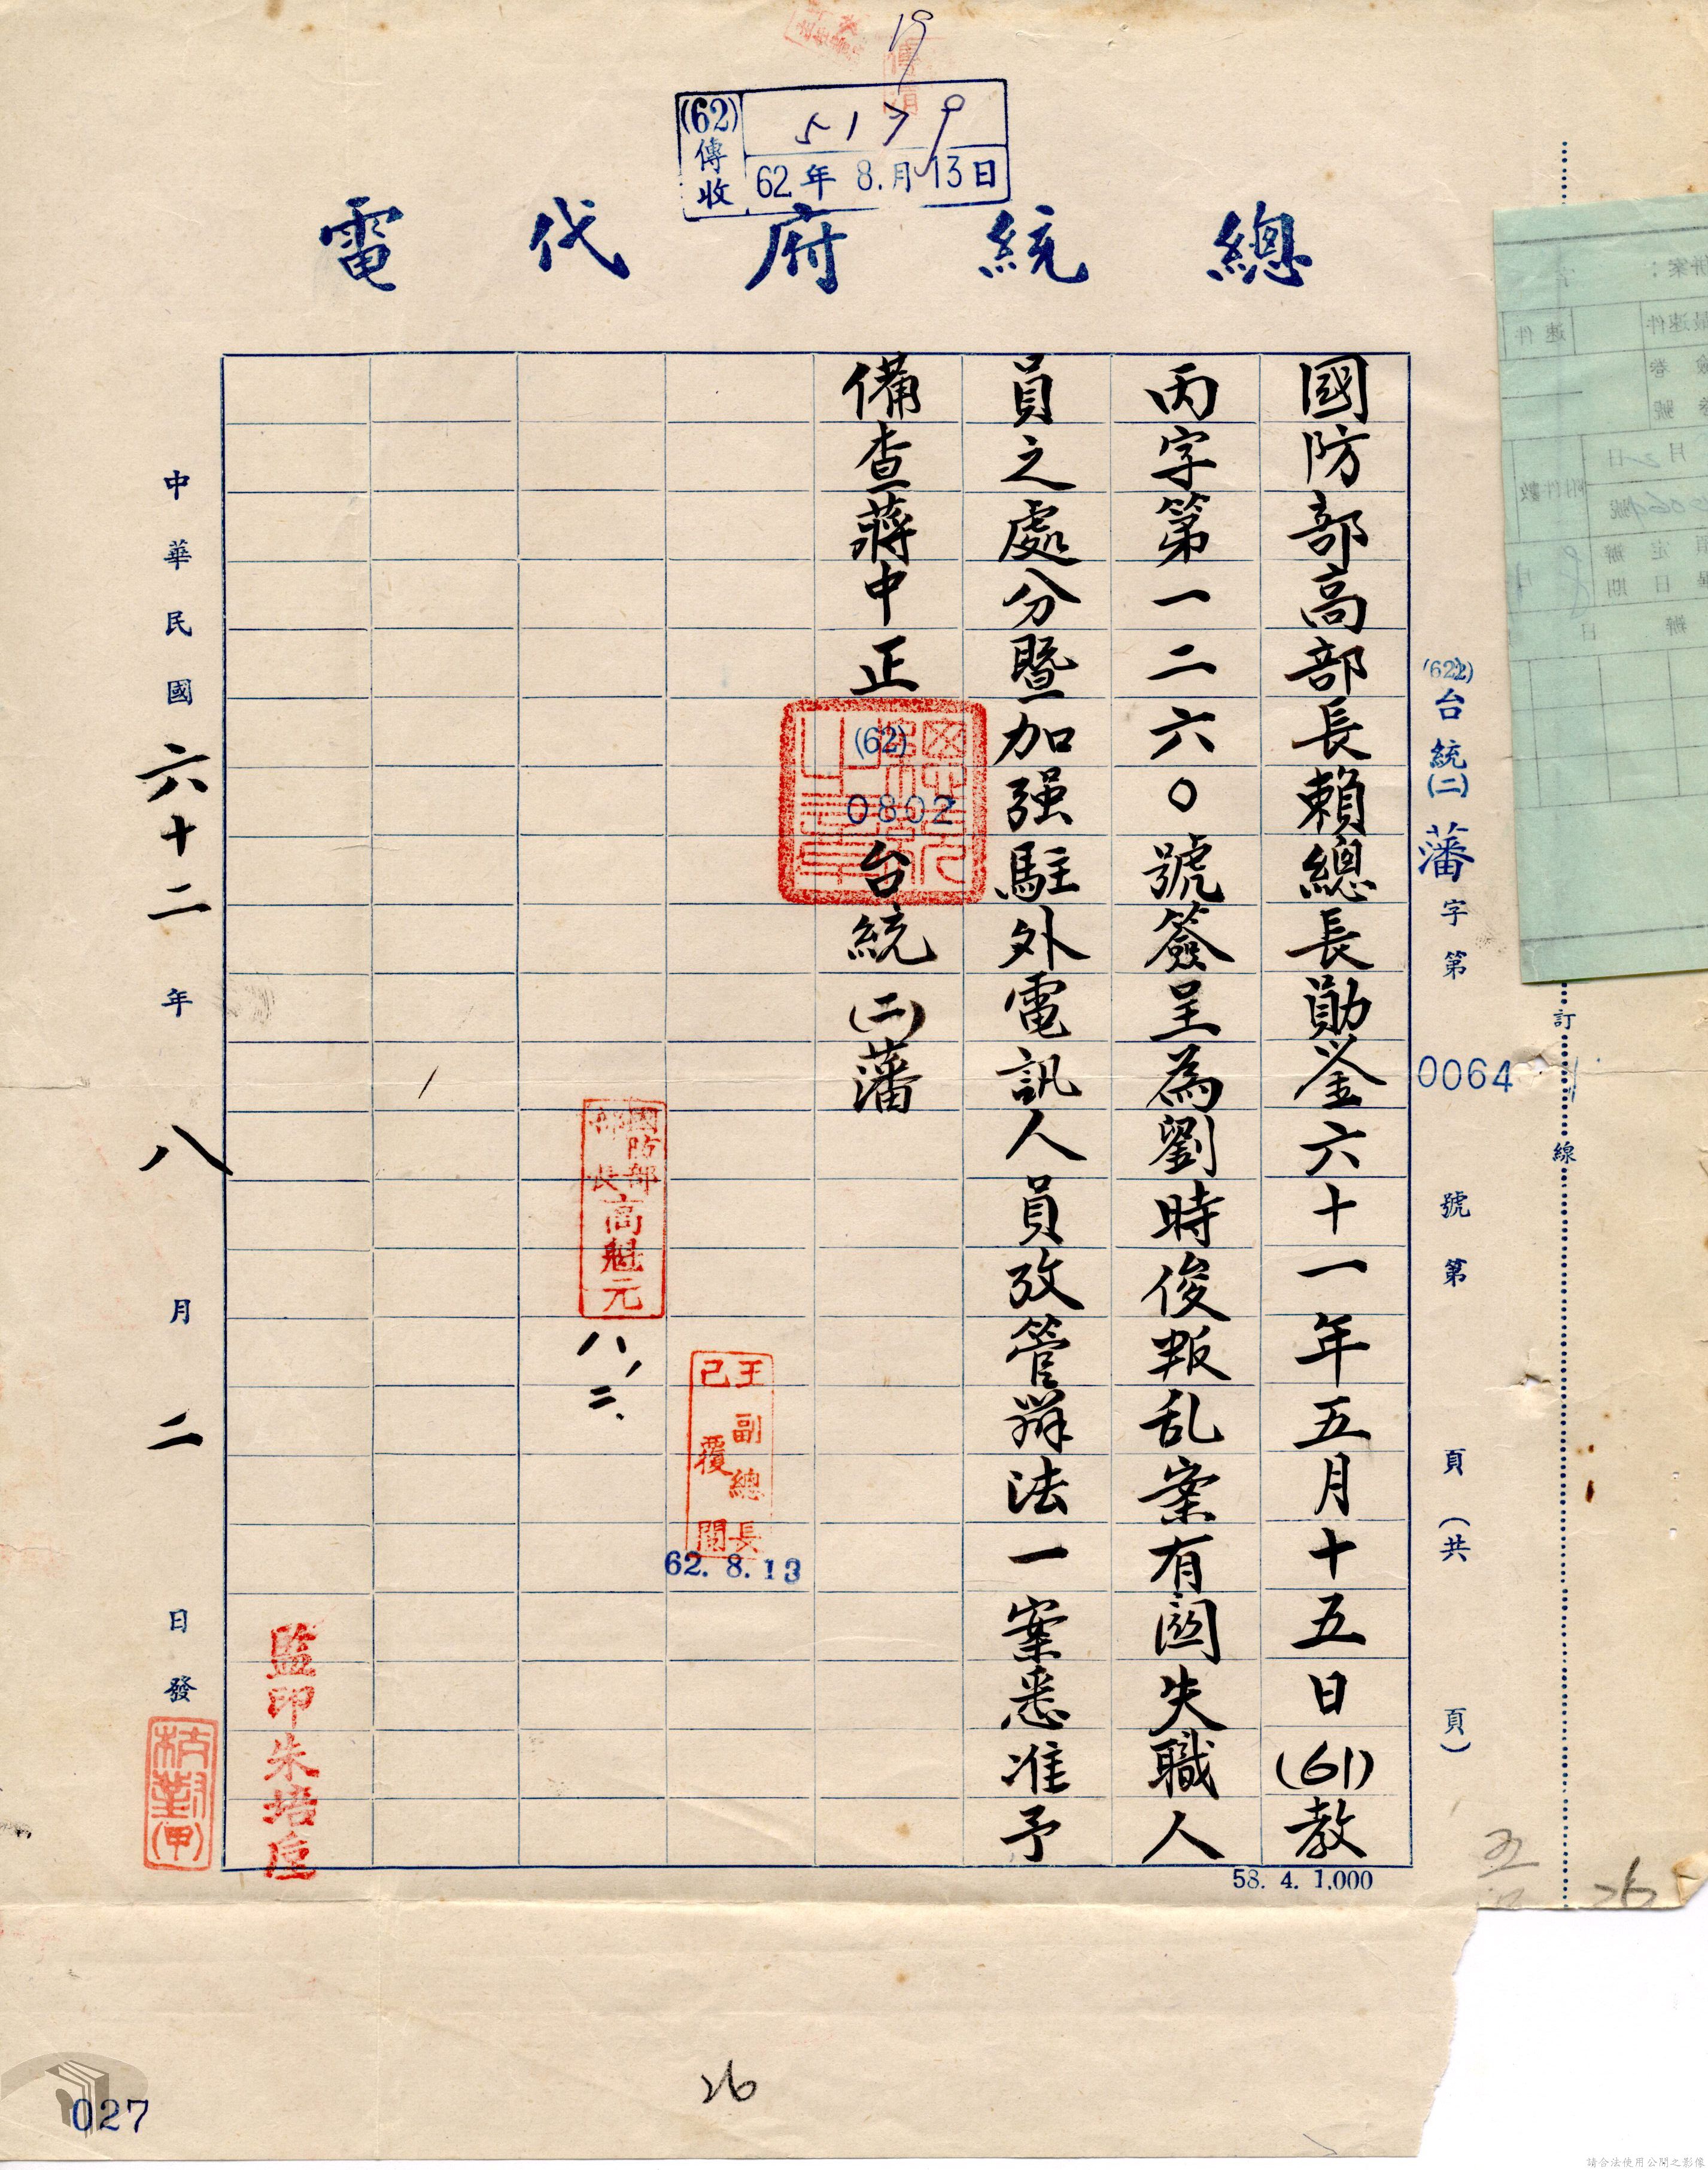 19
(62)傳收
5179
62年8.月13日
總統府代電
(622)台統(二)藩字第0064號第頁(共頁)
訂線
國防部高部長賴總長勛鉴六十一年五月十五日(61)教
丙字第一二六〇號簽呈為劉時俊叛乱案有関失職人
員之處分暨加强駐外電訊人員攷管辦法一案悉准予
備查蔣中正(62)0802台統(二)藩
總統之章
王副總長已覆閱
62.8.13
國防部部長高魁元
八、二、
監印朱培垕
中華民國六十二年八月二日發
校對(甲)
58. 4. 1,000
26
26
027
請合法使用公開之影像